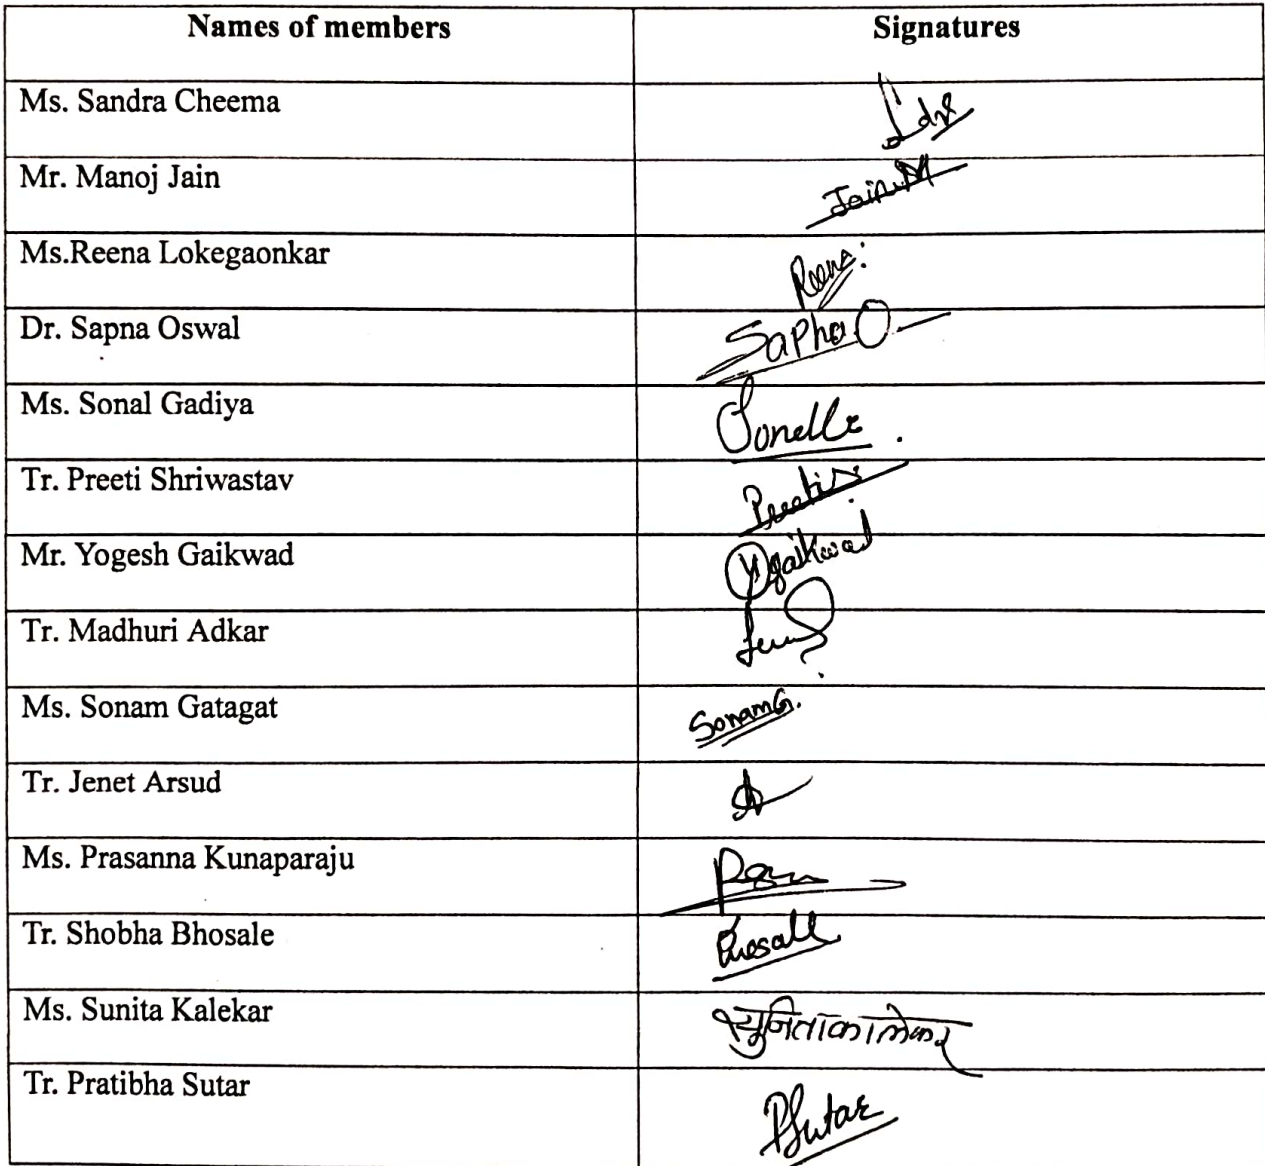 Names of members Signatures
Ms. Sandra Cheema
Mr. Manoj Jain Jain.M
Ms.Reena Lokegaonkar Reena:
Dr. Sapna Oswal Sapna O
Ms. Sonal Gadiya
Tr. Preeti Shriwastav
Mr. Yogesh Gaikwad YGaikwad
Tr. Madhuri Adkar
Ms. Sonam Gatagat SonamG.
Tr. Jenet Arsud
Ms. Prasanna Kunaparaju
Tr. Shobha Bhosale
Ms. Sunita Kalekar सुनिता कालेकर
Tr. Pratibha Sutar PSutar